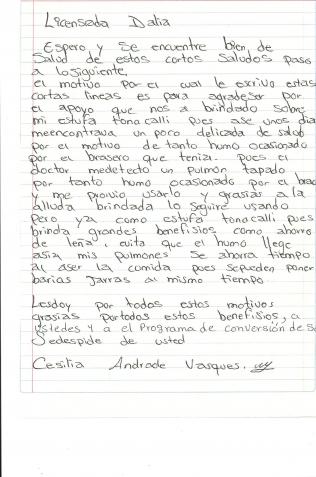 Licensada Dalia
Espero y Se encuentre bien, de
Salud de estos cortos Saludos paso
a losiguiente,
el motivo por el cual le escrivo estas
cortas lineas es para agradeser por
el apoyo que nos a brindado sobre
mi estufa tonacalli pues ase unos dia
meencontrava un poco delicada de salob
por el motivo de tanto humo ocasionado
por el brasero que tenia. pues el
doctor medetecto un pulmón tapado
por tanto humo ocasionado por el brac
y me proivio usarlo y grasias a la
alluda brindada lo seguire usando
pero ya como estufa tonacalli pues
brinda grandes benefisios como ahorro
de leña, evita que el humo llege
asia mis pulmones Se ahorra tiempo
al aser la comida pues Sepueden poner
barias Jarras al mismo tiempo.
Lesdoy por todos estos motivos
grasias portodos estos benefisios, a
ustedes y a el Programa de conversión de S
Sedespide de usted
Cesilia Andrade Vasques.